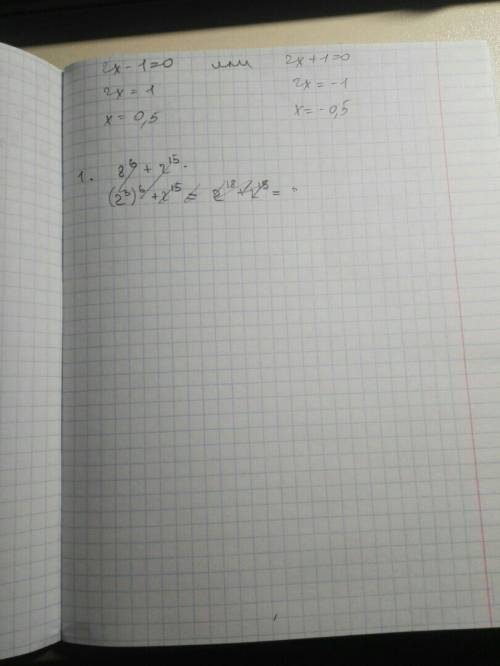 2x - 1 = 0 или 2x + 1 = 0
2x = 1 2x = -1
x = 0,5 x = -0,5
1. 8⁶ + 2¹⁵.
(2³)⁶ + 2¹⁵ = 2¹⁸ + 2¹⁵ =